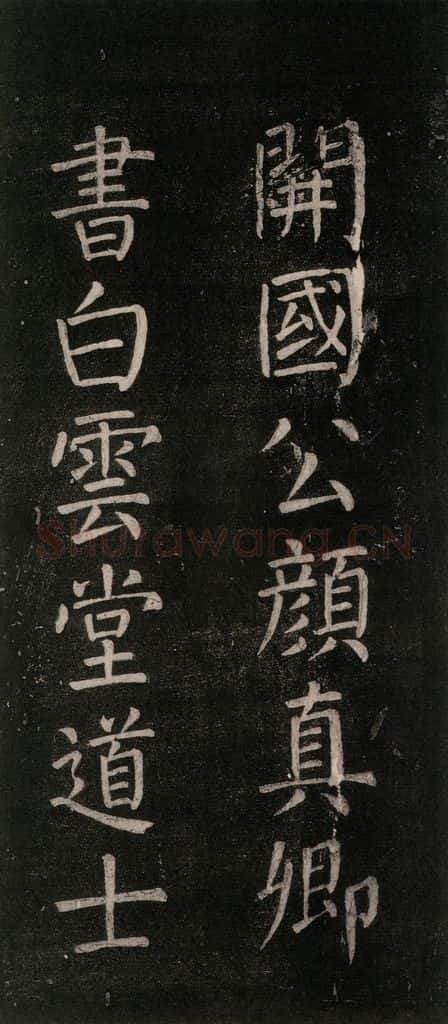 開國公顏真卿
書白雲堂道士
Shufawang.CN